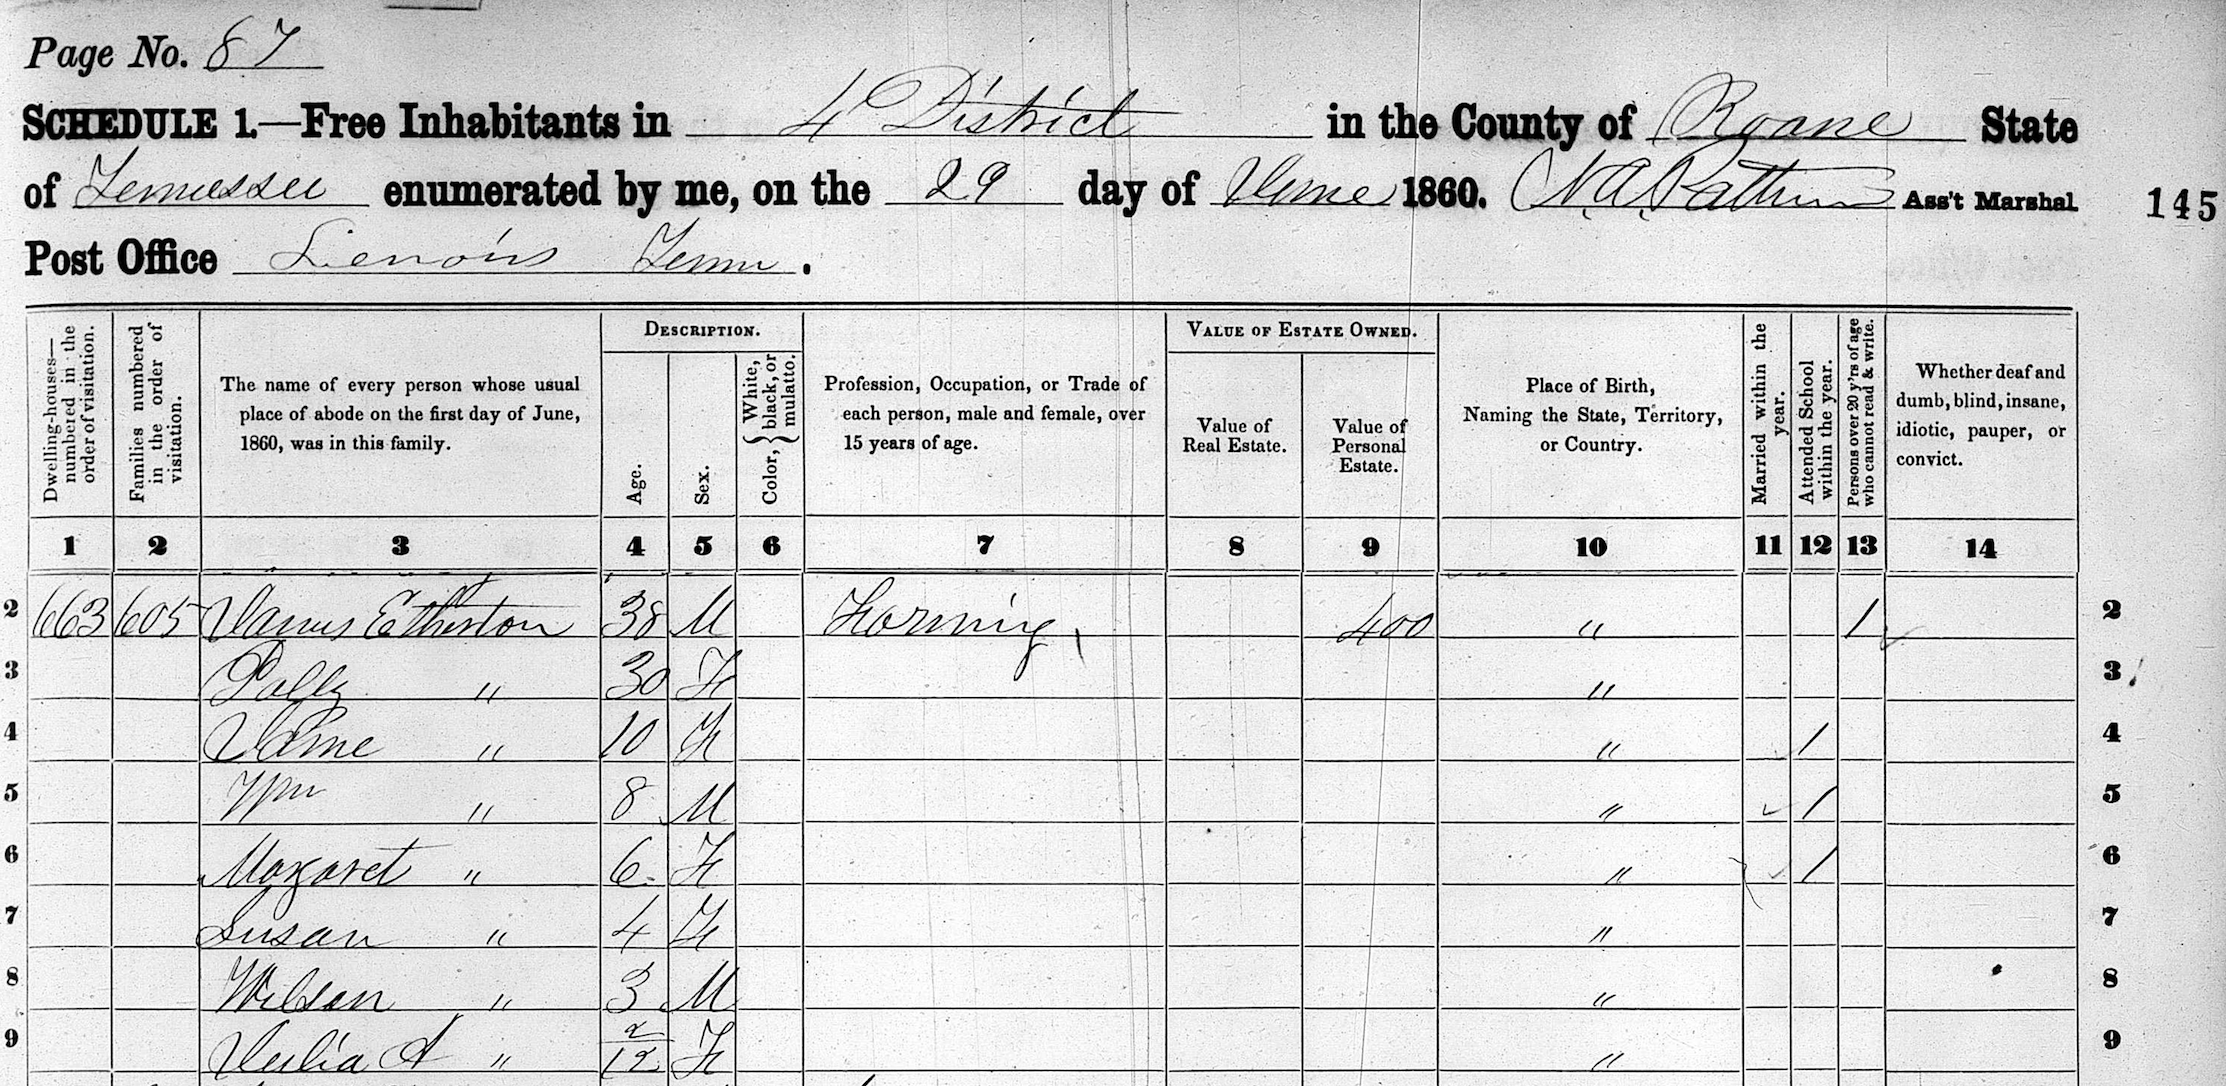 Page No. 87
SCHEDULE 1.—Free Inhabitants in 4 District in the County of Roane State
of Tennessee enumerated by me, on the 29 day of June 1860. Ass't Marshal 145
Post Office Lenoirs Tenn.
Dwelling-houses—numbered in the order of visitation.
Families numbered in the order of visitation.
The name of every person whose usual
place of abode on the first day of June,
1860, was in this family.
DESCRIPTION.
Age.
Sex.
Color, { White, black, or mulatto.
Profession, Occupation, or Trade of
each person, male and female, over
15 years of age.
VALUE OF ESTATE OWNED.
Value of
Real Estate.
Value of
Personal
Estate.
Place of Birth,
Naming the State, Territory,
or Country.
Married within the year.
Attended School within the year.
Persons over 20 y'rs of age who cannot read & write.
Whether deaf and
dumb, blind, insane,
idiotic, pauper, or
convict.
1 2 3 4 5 6 7 8 9 10 11 12 13 14
2 663 605 James Etherton 38 M Farming 400 " / 2
3 Polly " 30 F " 3
4 Jane " 10 F " / 4
5 Wm " 8 M " / 5
6 Margaret " 6 F " / 6
7 Susan " 4 F " 7
8 Wilson " 3 M " 8
9 Julia A " 2/12 F " 9